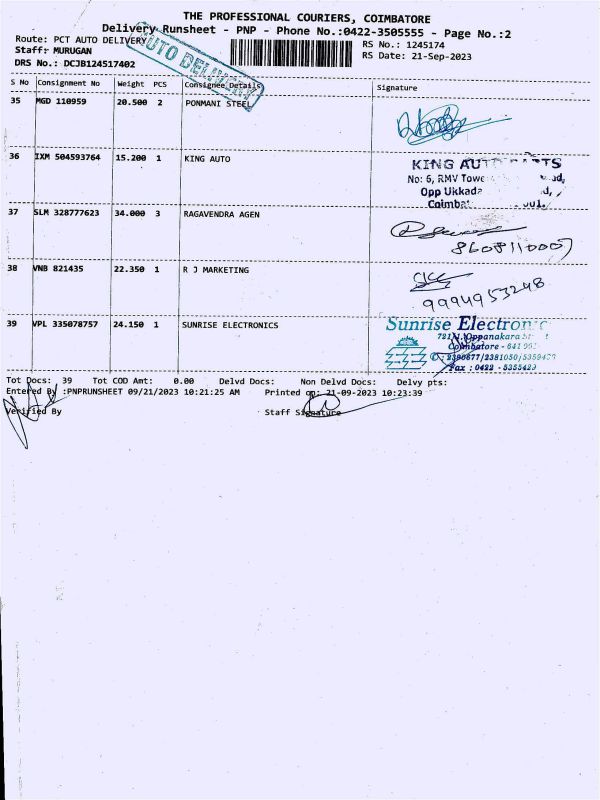 THE PROFESSIONAL COURIERS, COIMBATORE
Delivery Runsheet - PNP - Phone No.:0422-3505555 - Page No.:2
Route: PCT AUTO DELIVERY
RS No.: 1245174
Staff: MURUGAN
RS Date: 21-Sep-2023
DRS No.: DCJB124517402
AUTO DELIVERY
S No Consignment No Weight PCS Consignee Details Signature
35 MGD 110959 20.500 2 PONMANI STEEL
36 IXM 504593764 15.200 1 KING AUTO
KING AUTO PARTS
No: 6, RMV
Opp Ukkada
Coimba
37 SLM 328777623 34.000 3 RAGAVENDRA AGEN
8608110007
38 VNB 821435 22.350 1 R J MARKETING
9994953248
39 VPL 335078757 24.150 1 SUNRISE ELECTRONICS
Sunrise Electronic
Oppanakara St
Coimbatore - 641 001
2390677/2381050/
Fax : 0422 - 5355429
Tot Docs: 39 Tot COD Amt: 0.00 Delvd Docs: Non Delvd Docs: Delvy pts:
Entered By :PNPRUNSHEET 09/21/2023 10:21:25 AM Printed on: 21-09-2023 10:23:39
Verified By Staff Signature